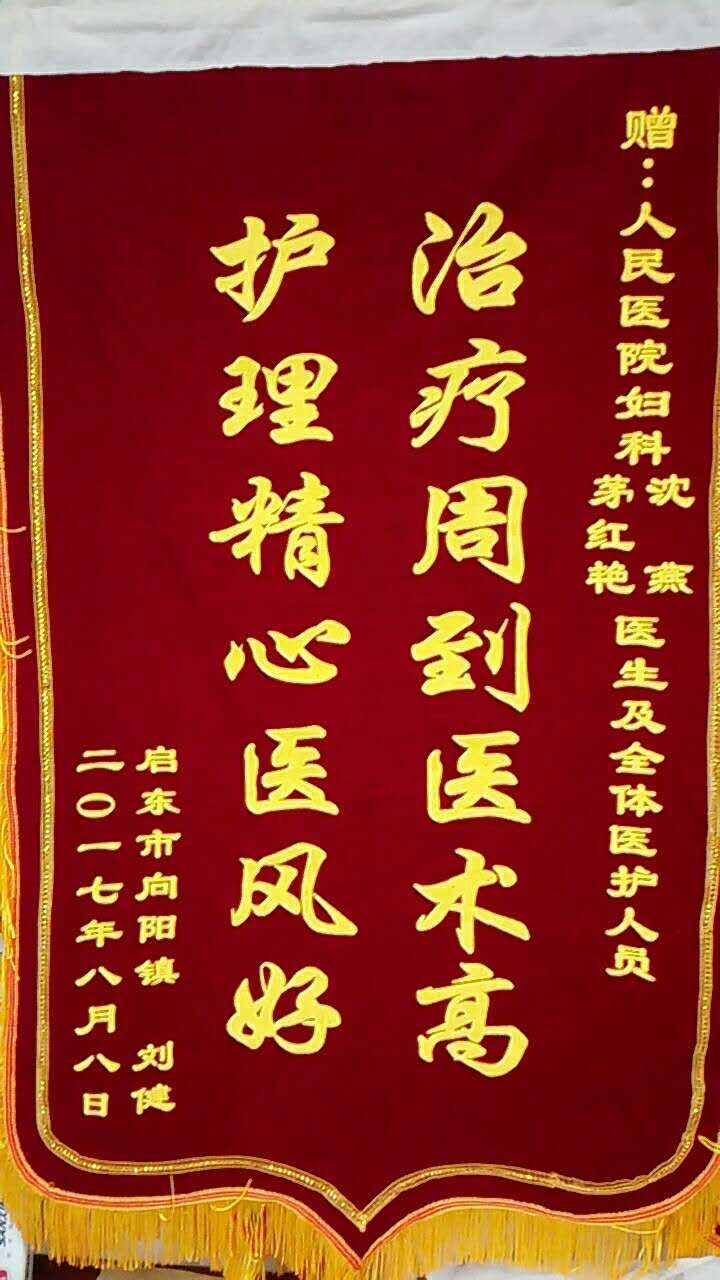 赠:人民医院妇科沈燕
茅红艳医生及全体医护人员
治疗周到医术高
护理精心医风好
启东市向阳镇 刘健
二〇一七年八月八日